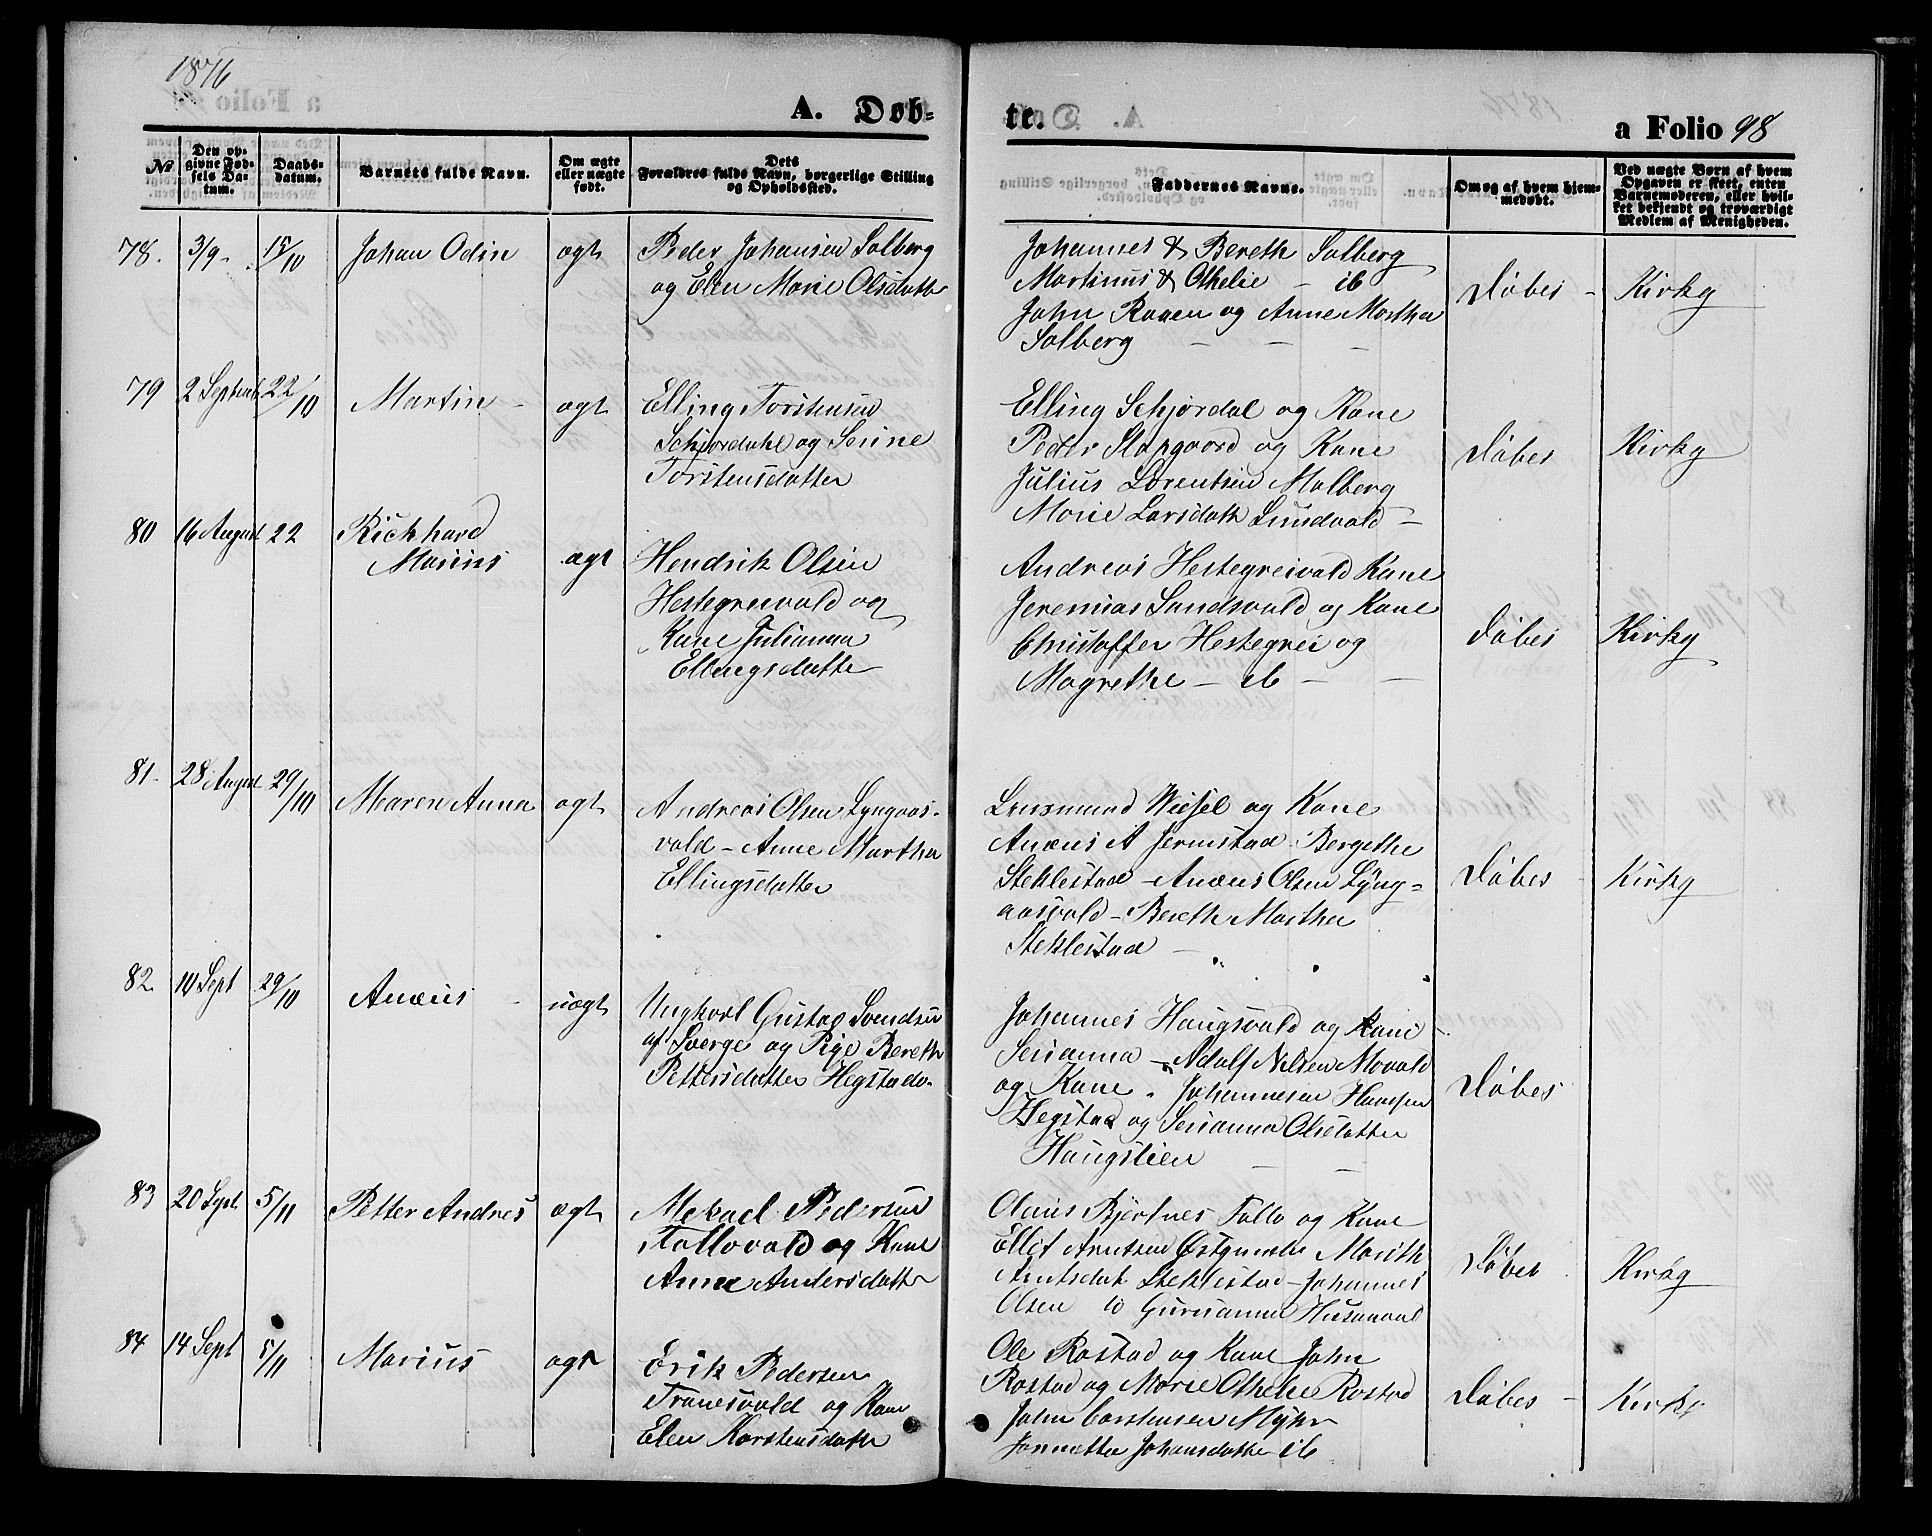 1876
A. Døb-
te.
a Folio 98
No
Den op-
givne Fød-
sels Da-
tum.
Daabs-
datum.
Barnets fulde Navn.
Om ægte
eller uægte
født.
Dets
Forældres fulde Navn, borgerlige Stilling
og Opholdssted.
Faddernes Navne.
Om og af hvem hjem-
medøbt.
Ved uægte Børn af hvem
Opgaven er skeet, enten
Barnemoderen, eller hvil-
ket bekjendt og troværdigt
Medlem af Menigheden.
78. 3/9 - 15/10 Johan Odin ægt
Peder Johansen Solberg
og Elen Marie Olsdatte
Johannes & Bereth Solberg
Martinus & Othelie - ib
John Raaen og Anne Martha
Solberg - - -
Døbes - Kirky
79 2 Septemb 22/10 Martin - ægt
Elling Torstensen
Schjørdahl og Serine
Torstensdatter
Elling Schjørdal og Kone
Peder Slapgaard og Kone
Julius Lorentsen Molberg
Marie Larsdatte Lundvald -
Døbes Kirky
80 16 August 22 Rickhard
Marius ægt
Hendrik Olsen
Hestegreivald og
Kone Julianna
Ellingsdatte
Andreas Hestegreivald Kone
Jeremias Sandsvald og Kone
Christoffer Hestegrei og
Magrethe - ib - -
Døbes Kirky
81- 28 August 29/10 Maren Anna ægt
Andreas Olsen Lyngaas-
vald - Anne Martha
Ellingsdatter
Lensmand Wessel og Kone
Anæus A Jermstad - Bergethe
Steklestad - Anæus Olsen Lyng-
aasvald - Bereth Martha
Steklestad -
Døbes - Kirky
82. 10 Sept 29/10 Anæus - uægt
Ungkarl Gustav Svendsen
af Sverge og Pige Bereth
Pettersdatter Hegstad.
Johannes Haugsvald og Kone -
Serianna - Adolf Nilsen Movald
og Kone. Johannesen Hansen
Hegstad og Serianna Olsdatter
Haugslien - -
Døbes
83 20 Sept 5/11 Petter Andres ægt
Mekael Pedersen
Tollovald og Kone
Anne Andersdatte
Olaus Bjertnes Tollo og Kone
Ellef Arntsen Marith
Arntsdat. Steklestad - Johannes
Olsen Gurianna Husanvald
Døbes Kirky
84 14 Sept 5/11 Marius ægt
Erik Pedersen
Tranesvald og Kone
Elen Karstensdatte
Ole Rostad og Kone John
Rostad og Marie Othelie Rostad
John Carstensen Myhr
Jonnetta Johansdatte ib
Døbes - Kirky